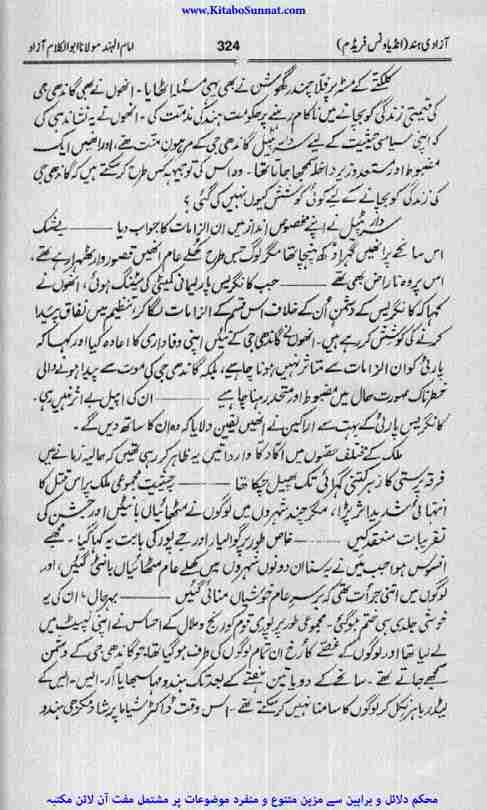 www.KitaboSunnat.com
آزادی ہند (انڈیا ونس فریڈم) 324 امام الہند مولانا ابوالکلام آزاد
کلکتے کے مسٹر پرفلا چندر گھوش نے بھی یہی مسئلہ اٹھایا۔ انھوں نے بھی گاندھی جی
کی قیمتی زندگی کو بچانے میں ناکام رہنے پر حکومت ہند کی مذمت کی۔ انھوں نے یہ نشاندہی کی
کہ اپنی سیاسی حیثیت کے لیے سردار پٹیل گاندھی جی کے مرہون منت تھے، اور انھیں ایک
مضبوط اور مستعد وزیر داخلہ سمجھا جاتا تھا۔ وہ اس کی توجیہہ کس طرح کر سکتے ہیں کہ گاندھی جی
کی زندگی کو بچانے کے لیے کوئی کوشش کیوں نہیں کی گئی؟
سردار پٹیل نے اپنے مخصوص انداز میں ان الزامات کا جواب دیا ——— بے شک
اس سانحے پر انھیں گہرا دکھ پہنچا تھا مگر لوگ جس طرح کھلے عام انھیں قصوروار ٹھہرا رہے تھے،
اس پر وہ ناراض بھی تھے ——— جب کانگریس پارلیمانی کمیٹی کی میٹنگ ہوئی، انھوں نے
کہا کہ کانگریس کے دشمن اُن کے خلاف اس قسم کے الزامات لگا کر تنظیم میں نفاق پیدا
کرنے کی کوشش کر رہے ہیں۔ انھوں نے گاندھی جی کے تئیں اپنی وفاداری کا اعادہ کیا اور کہا کہ
پارٹی کو ان الزامات سے متاثر نہیں ہونا چاہیے، بلکہ گاندھی جی کی موت سے پیدا ہونے والی
خطرناک صورت حال میں مضبوط اور متحد رہنا چاہیے ——— ان کی اپیل بے اثر نہیں رہی۔
کانگریس پارٹی کے بہت سے اراکین نے انھیں یقین دلایا کہ وہ ان کا ساتھ دیں گے۔
ملک کے مختلف حصوں میں اکا دکا وارداتیں یہ ظاہر کر رہی تھیں کہ حالیہ زمانے میں
فرقہ پرستی کا زہر کتنی گہرائی تک پھیل چکا تھا ——— بحیثیت مجموعی ملک پر اس قتل کا
انتہائی شدید اثر پڑا، مگر چند شہروں میں لوگوں نے مٹھائیاں بانٹیں اور جشن کی
تقریبات منعقد کیں ——— خاص طور پر گوالیار اور جے پور کی بابت یہ کہا گیا۔ مجھے
افسوس ہوا جب میں نے یہ سنا ان دونوں شہروں میں کھلے عام مٹھائیاں بانٹی گئیں، اور
لوگوں میں اتنی جرأت تھی کہ برسرعام خوشیاں منائی گئیں ——— بہرحال، ان کی یہ
خوشی جلدی ہی ختم ہو گئی۔ مجموعی طور پر پوری قوم کو رنج و ملال کے احساس نے اپنی لپیٹ میں
لے لیا تھا اور لوگوں کے غصے کا رُخ ان تمام لوگوں کی طرف ہو گیا تھا، جو گاندھی جی کے دشمن
سمجھے جاتے تھے۔ سانحے کے دو یا تین ہفتے کے بعد تک ہندو مہاسبھا یا آر۔ ایس۔ ایس کے
لیڈر باہر نکل کر لوگوں کا سامنا نہیں کر سکتے تھے۔ اس وقت ڈاکٹر شیاما پرشاد مکرجی ہندو
محکم دلائل و براہین سے مزین متنوع و منفرد موضوعات پر مشتمل مفت آن لائن مکتبہ